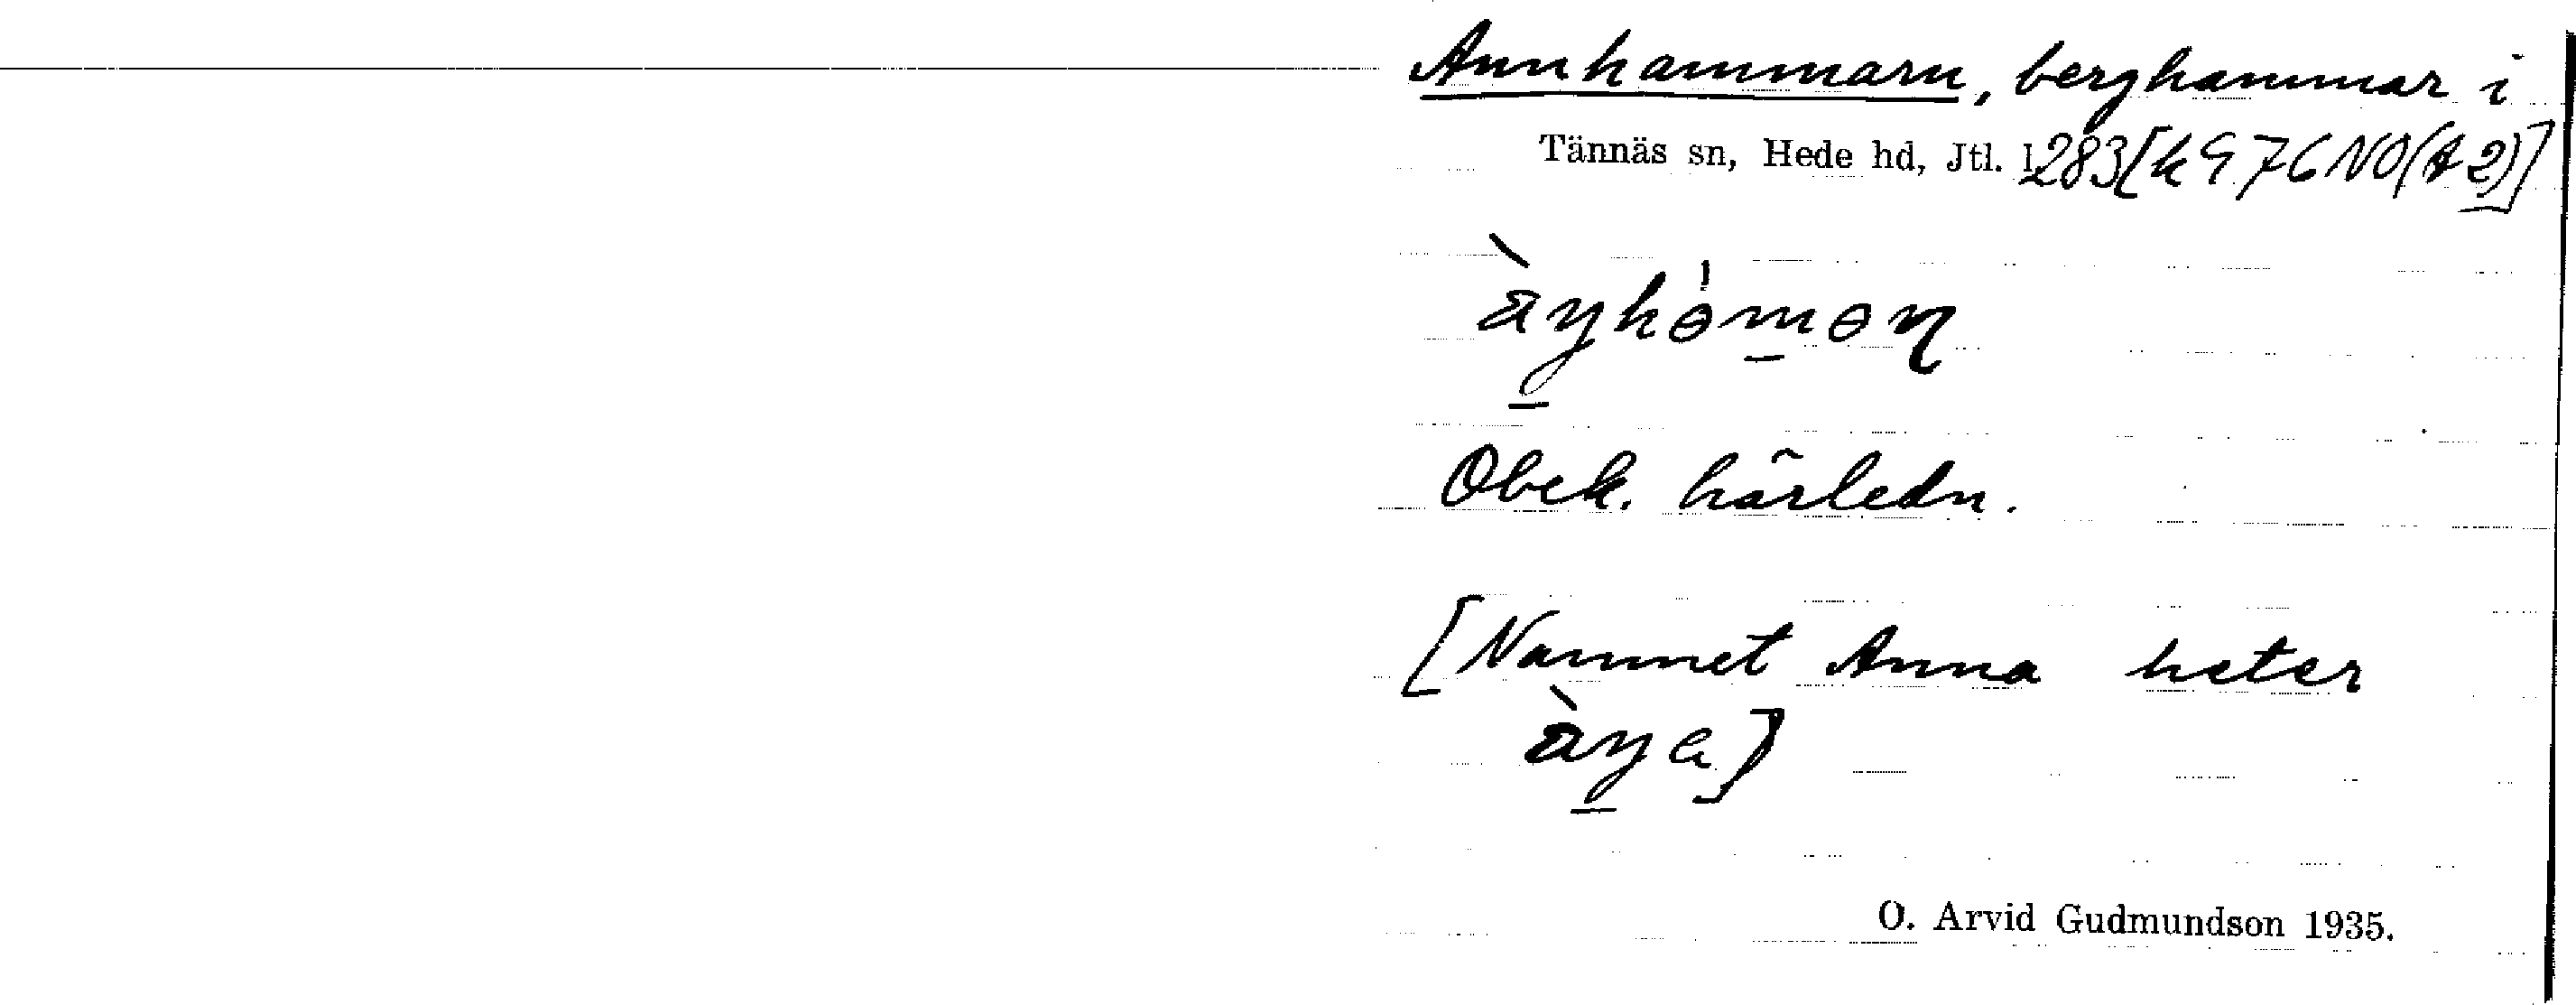 Annhammarn, berghammar i
Tännäs sn, Hede hd, Jtl. 1283[k976NO(A2)]
Obek. härledn.
[Namnet Anna heter
O. Arvid Gudmundson 1935.